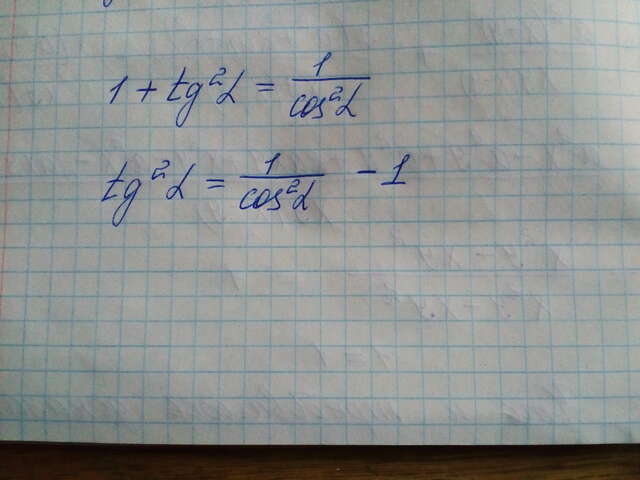 1 + tg²α = 1/cos²α
tg²α = 1/cos²α - 1